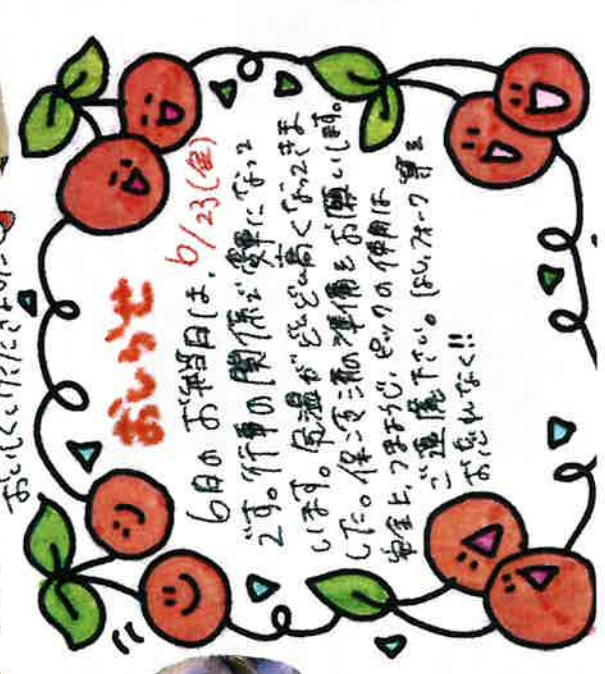 おしらせ
6月のお弁当日は、6/23(金)
です。行事の関係で変更になって
います。気温がどんどん高くなってきま
した。保冷剤の準備をお願いします。
安全上、つまようじ、ピックの使用は
ご遠慮下さい。はし、フォーク等を
お忘れなく!!